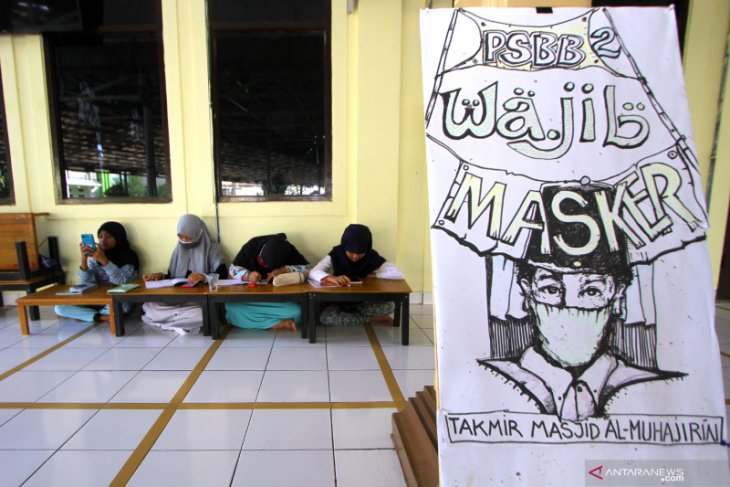 PSBB 2
WAJIB
MASKER
TAKMIR MASJID AL-MUHAJIRIN
ANTARANEWS
.com